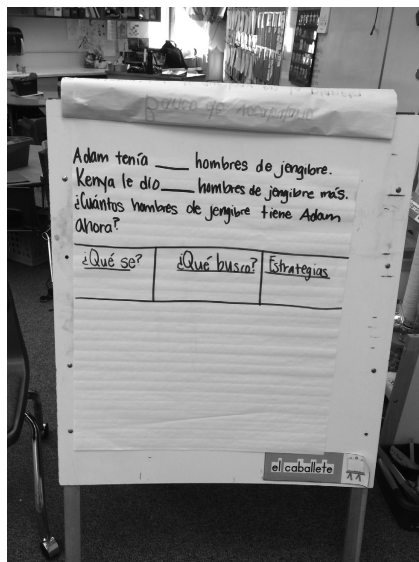 Adam tenía ____ hombres de jengibre.
Kenya le dio ____ hombres de jengibre más.
¿Cuántos hombres de jengibre tiene Adam
ahora?
¿Qué se? ¿Qué busco? Estrategias
el caballete